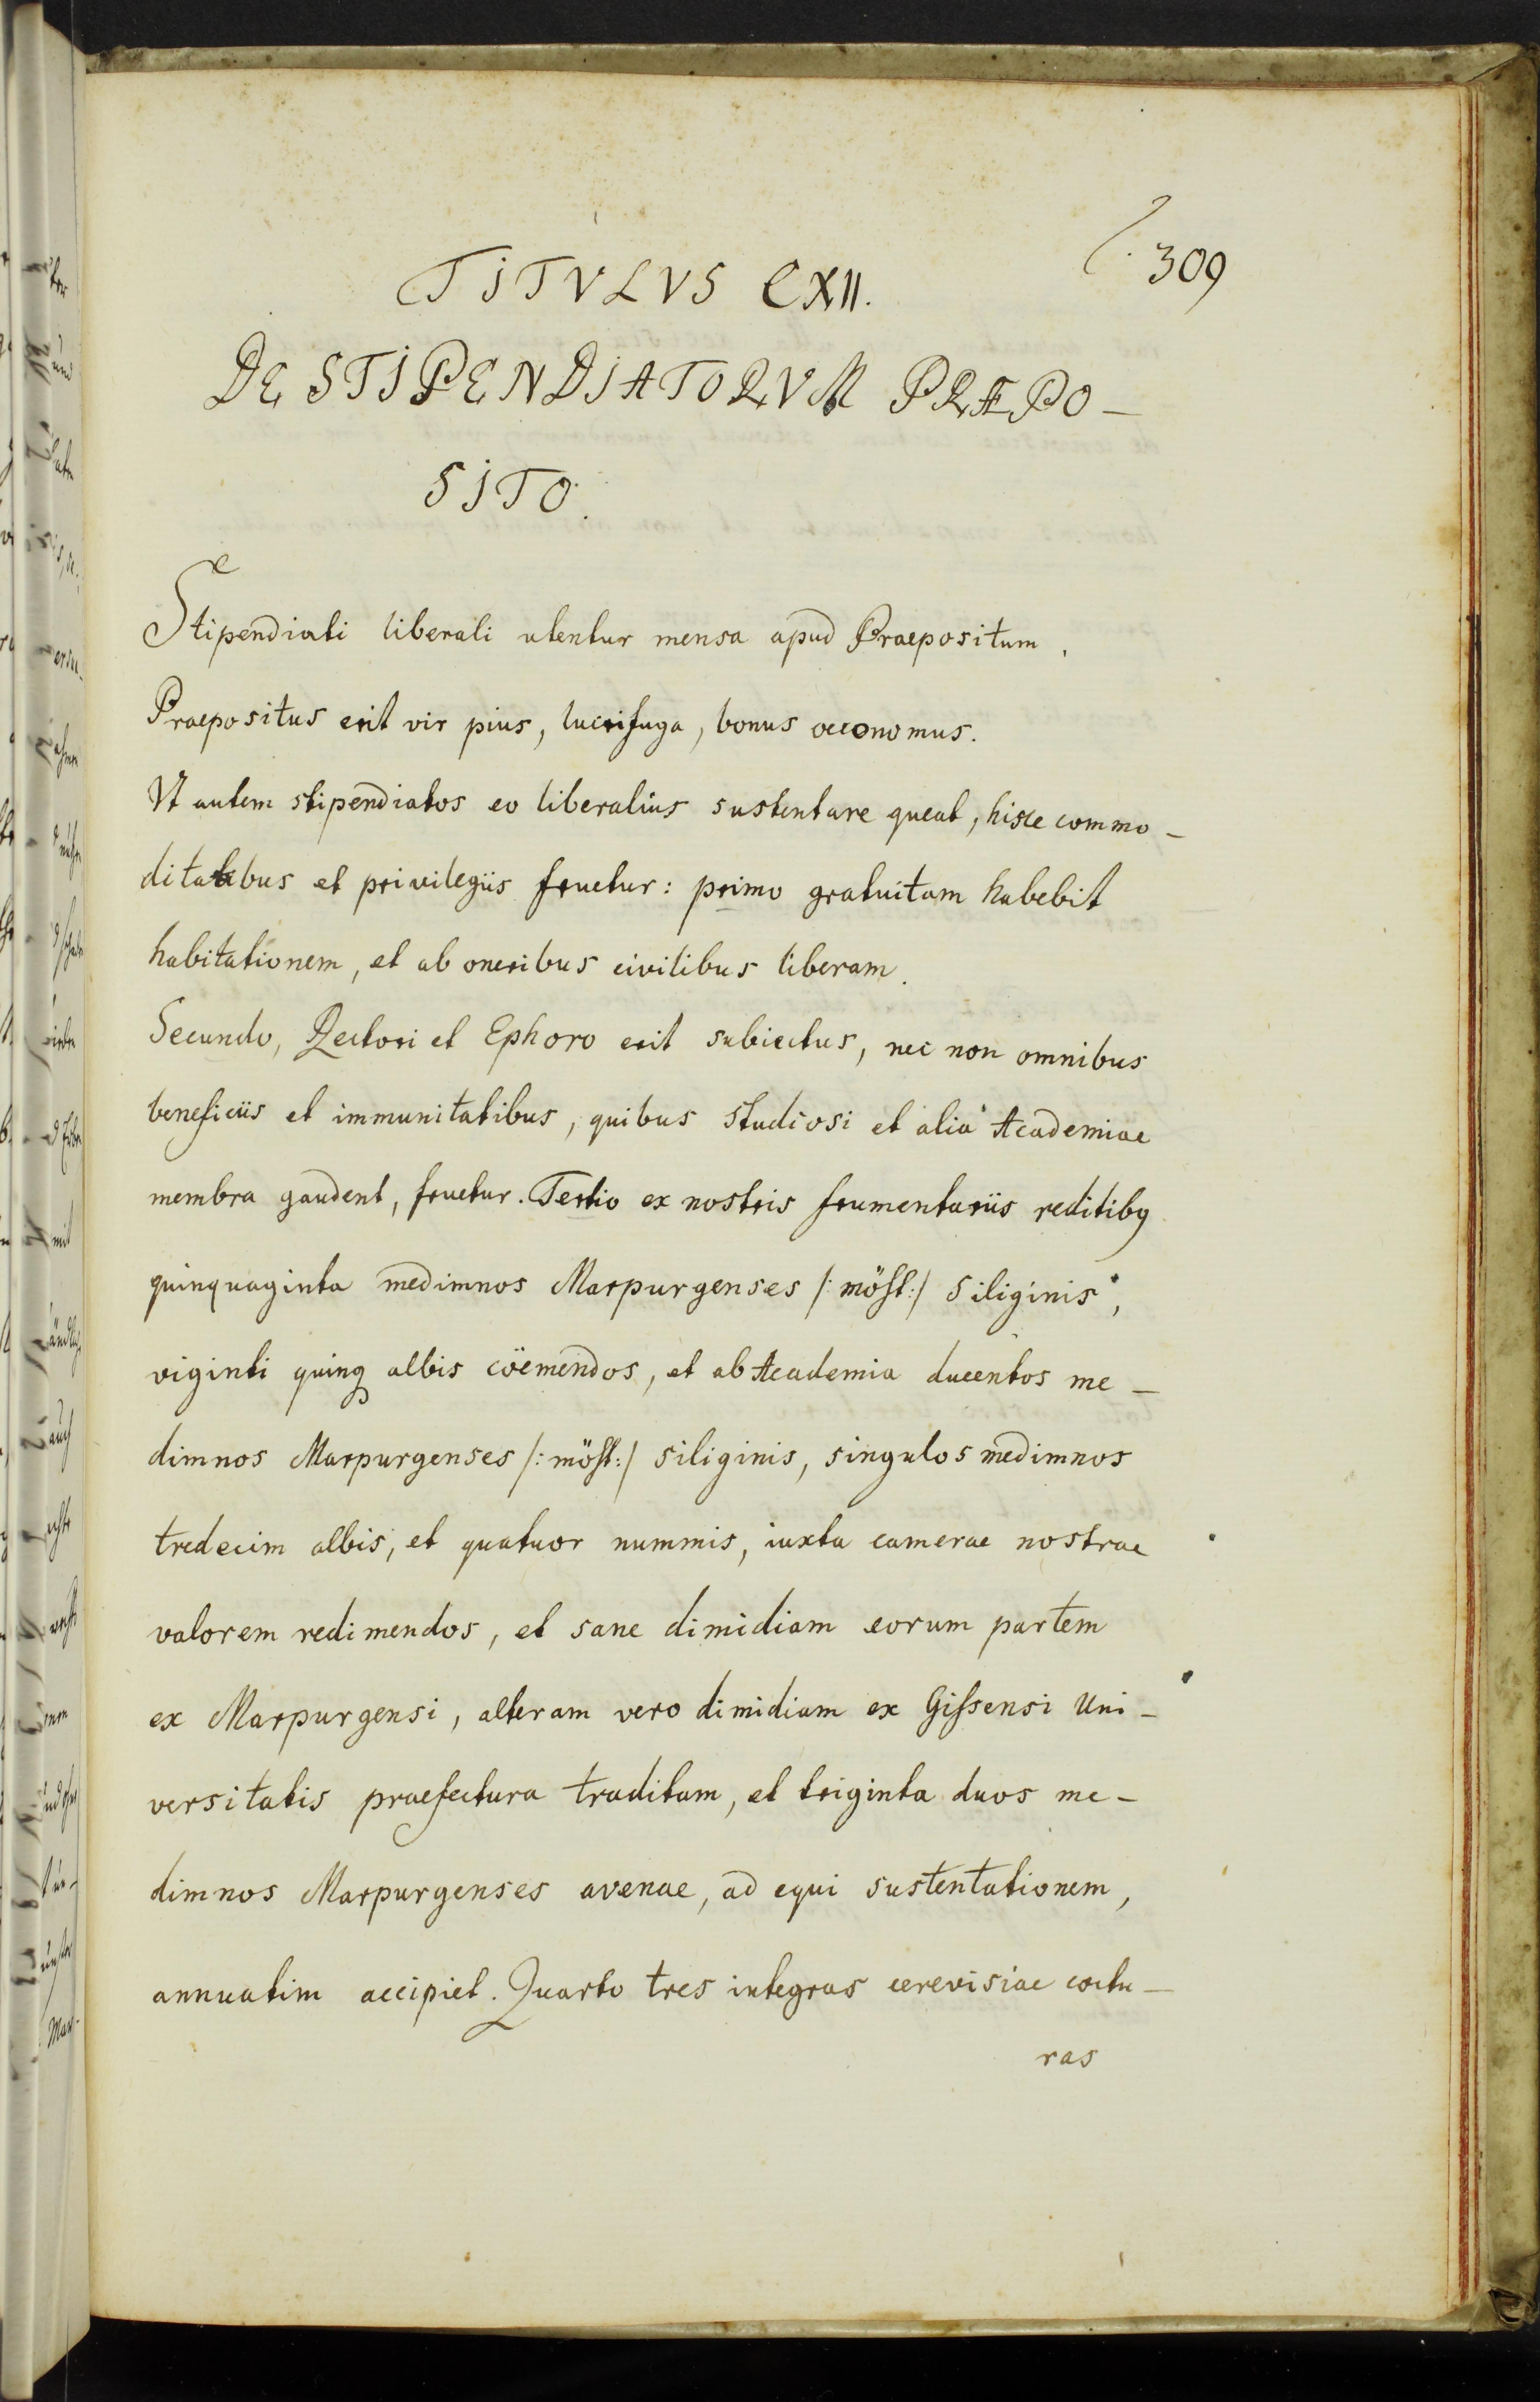 309
TITVLVS CXII.
DE STIPENDIATORVM PRÆPO-
SITO.
Stipendiati liberali utentur mensa apud Praepositum.
Praepositus erit vir pius, lucrifuga, bonus oeconomus.
Vt autem stipendiatos eo liberalius sustentare queat, hisce commo-
ditatibus et privilegiis fruetur: primo gratuitam habebit
habitationem, et ab oneribus civilibus liberam.
Secundo, Rectori et Ephoro erit subiectus, nec non omnibus
beneficiis et immunitatibus, quibus studiosi et alia Academiae
membra gaudent, fruetur. Tertio ex nostris frumentariis reditibꝰ
quinquaginta medimnos Marpurgenses /: möst:/ siliginis,
viginti quinqꝫ albis coëmendos, et ab Academia ducentos me-
dimnos Marpurgenses /: möst:/ siliginis, singulos medimnos
tredecim albis, et quatuor nummis, iuxta camerae nostrae
valorem redimendos, et sane dimidiam eorum partem
ex Marpurgensi, alteram vero dimidiam ex Gissensi Uni-
versitatis praefectura traditam, et triginta duos me-
dimnos Marpurgenses avenae, ad equi sustentationem,
annuatim accipiet. Quarto tres integras cerevisiae coctu-
ras